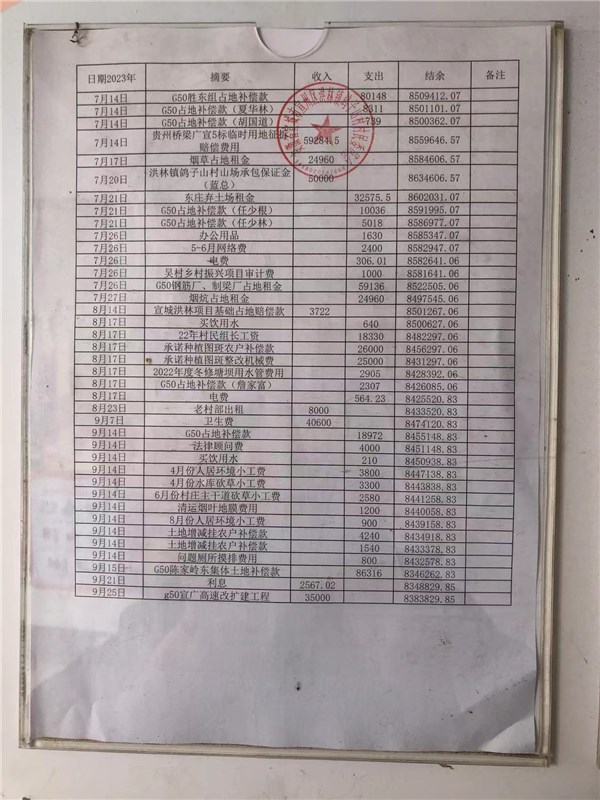 日期2023年 摘要 收入 支出 结余 备注
7月14日 G50胜东组占地补偿款 80148 8509412.07
7月14日 G50占地补偿款（夏华林） 8311 8501101.07
7月14日 G50占地补偿款（胡国道） 739 8500362.07
7月14日 贵州桥梁广宣5标临时用地征拆
赔偿费用 59284.5 8559646.57
7月17日 烟草占地租金 24960 8584606.57
7月20日 洪林镇鸽子山村山场承包保证金
（蓝总） 50000 8634606.57
7月21日 东庄弃土场租金 32575.5 8602031.07
7月21日 G50占地补偿款（任少根） 10036 8591995.07
7月21日 G50占地补偿款（任少林） 5018 8586977.07
7月26日 办公用品 1630 8585347.07
7月26日 5-6月网络费 2400 8582947.07
7月26日 电费 306.01 8582641.06
7月26日 吴村乡村振兴项目审计费 1000 8581641.06
7月26日 G50钢筋厂、制梁厂占地租金 59136 8522505.06
7月27日 烟炕占地租金 24960 8497545.06
8月14日 宣城洪林项目基础占地赔偿款 3722 8501267.06
8月17日 买饮用水 640 8500627.06
8月17日 22年村民组长工资 18330 8482297.06
8月17日 承诺种植图斑农户补偿款 26000 8456297.06
8月17日 承诺种植图斑整改机械费 25000 8431297.06
8月17日 2022年度冬修塘坝用水管费用 2905 8428392.06
8月17日 G50占地补偿款（詹家富） 2307 8426085.06
8月17日 电费 564.23 8425520.83
8月23日 老村部出租 8000 8433520.83
9月7日 卫生费 40600 8474120.83
9月14日 G50占地补偿款 18972 8455148.83
9月14日 法律顾问费 4000 8451148.83
9月14日 买饮用水 210 8450938.83
9月14日 4月份人居环境小工费 3800 8447138.83
9月14日 4月份水库砍草小工费 3300 8443838.83
9月14日 6月份村庄主干道砍草小工费 2580 8441258.83
9月14日 清运烟叶地膜费用 1200 8440058.83
9月14日 8月份人居环境小工费 900 8439158.83
9月14日 土地增减挂农户补偿款 4240 8434918.83
9月14日 土地增减挂农户补偿款 1540 8433378.83
9月14日 问题厕所摸排费用 800 8432578.83
9月15日 G50陈家岭东集体土地补偿款 86316 8346262.83
9月21日 利息 2567.02 8348829.85
9月25日 g50宣广高速改扩建工程 35000 8383829.85